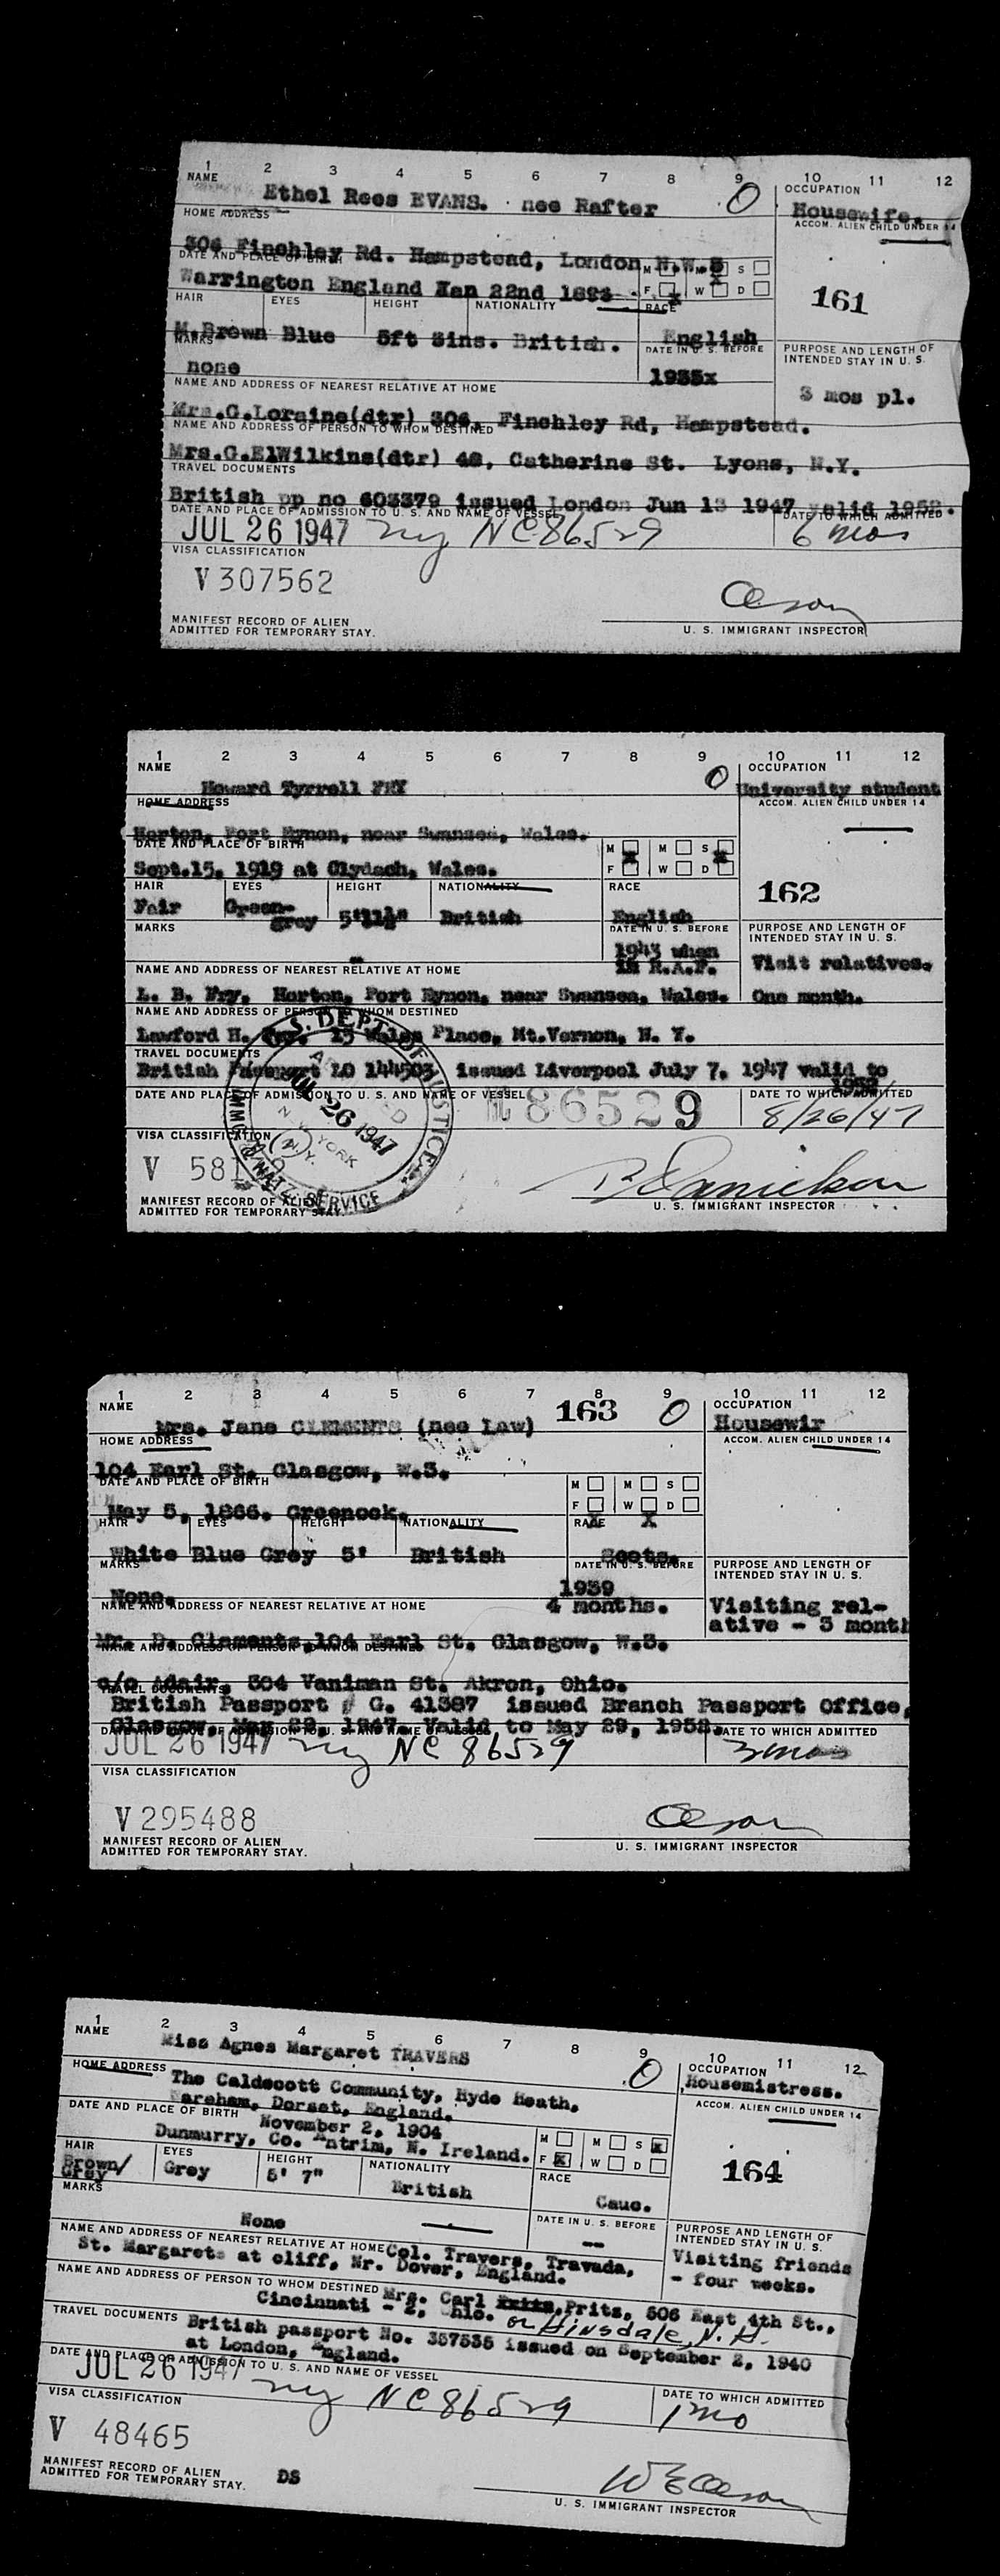 1 2 3 4 5 6 7 8 9 10 11 12
NAME OCCUPATION
Ethel Rees EVANS. nee Rafter 0 Housewife.
HOME ADDRESS ACCOM. ALIEN CHILD UNDER 14
306 Finchley Rd. Hampstead, London N.W.3
DATE AND PLACE OF BIRTH M M S
Warrington England Jan 22nd 1893 F W D
161
HAIR EYES HEIGHT NATIONALITY RACE
M.Brown Blue 5ft 3ins. British. English
MARKS DATE IN U. S. BEFORE PURPOSE AND LENGTH OF
INTENDED STAY IN U. S.
none 1935x
NAME AND ADDRESS OF NEAREST RELATIVE AT HOME 3 mos pl.
Mrs.G.Loraine(dtr) 306, Finchley Rd, Hampstead.
NAME AND ADDRESS OF PERSON TO WHOM DESTINED
Mrs.G.ElWilkins(dtr) 48, Catherine St. Lyons, N.Y.
TRAVEL DOCUMENTS
British pp no 603379 issued London Jun 13 1947 valid 1952.
DATE AND PLACE OF ADMISSION TO U. S. AND NAME OF VESSEL DATE TO WHICH ADMITTED
JUL 26 1947 ny NC86529 6 mos
VISA CLASSIFICATION
V 307562
Oeson
MANIFEST RECORD OF ALIEN
ADMITTED FOR TEMPORARY STAY. U. S. IMMIGRANT INSPECTOR
1 2 3 4 5 6 7 8 9 10 11 12
NAME OCCUPATION
Howard Tyrrell FRY 0 University student
HOME ADDRESS ACCOM. ALIEN CHILD UNDER 14
Horton, Port Eynon, near Swansea, Wales.
DATE AND PLACE OF BIRTH M M S
Sept.15, 1919 at Clydach, Wales. F W D
HAIR EYES HEIGHT NATIONALITY RACE 162
Fair Green-grey 5'11½" British English
MARKS DATE IN U. S. BEFORE PURPOSE AND LENGTH OF
INTENDED STAY IN U. S.
1943 when
in R.A.F. Visit relatives.
NAME AND ADDRESS OF NEAREST RELATIVE AT HOME
L. B. Fry, Horton, Port Eynon, near Swansea, Wales. One month.
NAME AND ADDRESS OF PERSON TO WHOM DESTINED
Lawford H. Fry, 15 Wales Place, Mt.Vernon, N. Y.
TRAVEL DOCUMENTS
British Passport LO 144503 issued Liverpool July 7, 1947 valid to
1952
DATE AND PLACE OF ADMISSION TO U. S. AND NAME OF VESSEL DATE TO WHICH ADMITTED
86529 8/26/47
U.S. DEPT. OF JUSTICE
JUL 26 1947
NEW YORK
N.Y.
SERVICE
VISA CLASSIFICATION
V 581
MANIFEST RECORD OF ALIEN
ADMITTED FOR TEMPORARY STAY. U. S. IMMIGRANT INSPECTOR
1 2 3 4 5 6 7 8 9 10 11 12
NAME 163 0 OCCUPATION
Mrs. Jane CLEMENTS (nee Law) Housewir
HOME ADDRESS ACCOM. ALIEN CHILD UNDER 14
104 Earl St. Glasgow, W.3.
DATE AND PLACE OF BIRTH M M S
May 5, 1866. Greenock. F W D
HAIR EYES HEIGHT NATIONALITY RACE
White Blue Grey 5' British Scots.
MARKS DATE IN U. S. BEFORE PURPOSE AND LENGTH OF
INTENDED STAY IN U. S.
None. 1939
NAME AND ADDRESS OF NEAREST RELATIVE AT HOME 4 months. Visiting rel-
ative - 3 month
Mr. D. Clements,104 Earl St. Glasgow, W.3.
NAME AND ADDRESS OF PERSON TO WHOM DESTINED
c/o Adair, 304 Vaniman St. Akron, Ohio.
TRAVEL DOCUMENTS
British Passport # G. 41387 issued Branch Passport Office,
Glasgow, May 29, 1947. Valid to May 29, 1952.
DATE AND PLACE OF ADMISSION TO U. S. AND NAME OF VESSEL DATE TO WHICH ADMITTED
JUL 26 1947 ny NC 86529 3 mos
VISA CLASSIFICATION
V 295488
Oeson
MANIFEST RECORD OF ALIEN
ADMITTED FOR TEMPORARY STAY. U. S. IMMIGRANT INSPECTOR
1 2 3 4 5 6 7 8 9 10 11 12
NAME OCCUPATION
Miss Agnes Margaret TRAVERS 0 Housemistress.
HOME ADDRESS ACCOM. ALIEN CHILD UNDER 14
The Caldecott Community, Hyde Heath,
Wareham, Dorset, England.
DATE AND PLACE OF BIRTH November 2, 1904 M M S
Dunmurry, Co. Antrim, N. Ireland. F W D
164
HAIR EYES HEIGHT NATIONALITY RACE
Brown/Grey Grey 5' 7" British Cauc.
MARKS DATE IN U. S. BEFORE PURPOSE AND LENGTH OF
INTENDED STAY IN U. S.
None -- Visiting friends
- four weeks.
NAME AND ADDRESS OF NEAREST RELATIVE AT HOME Col. Travers, Travada,
St. Margarets at cliff, Nr. Dover, England.
NAME AND ADDRESS OF PERSON TO WHOM DESTINED Mrs. Carl Pritz, 506 East 4th St.,
Cincinnati - 2, Ohio. or Hinsdale, N. H.
TRAVEL DOCUMENTS British passport No. 357535 issued on September 2, 1940
at London, England.
DATE AND PLACE OF ADMISSION TO U. S. AND NAME OF VESSEL DATE TO WHICH ADMITTED
JUL 26 1947 ny NC86529 1 mo
VISA CLASSIFICATION
V 48465
W E Oeson
MANIFEST RECORD OF ALIEN
ADMITTED FOR TEMPORARY STAY. DS U. S. IMMIGRANT INSPECTOR